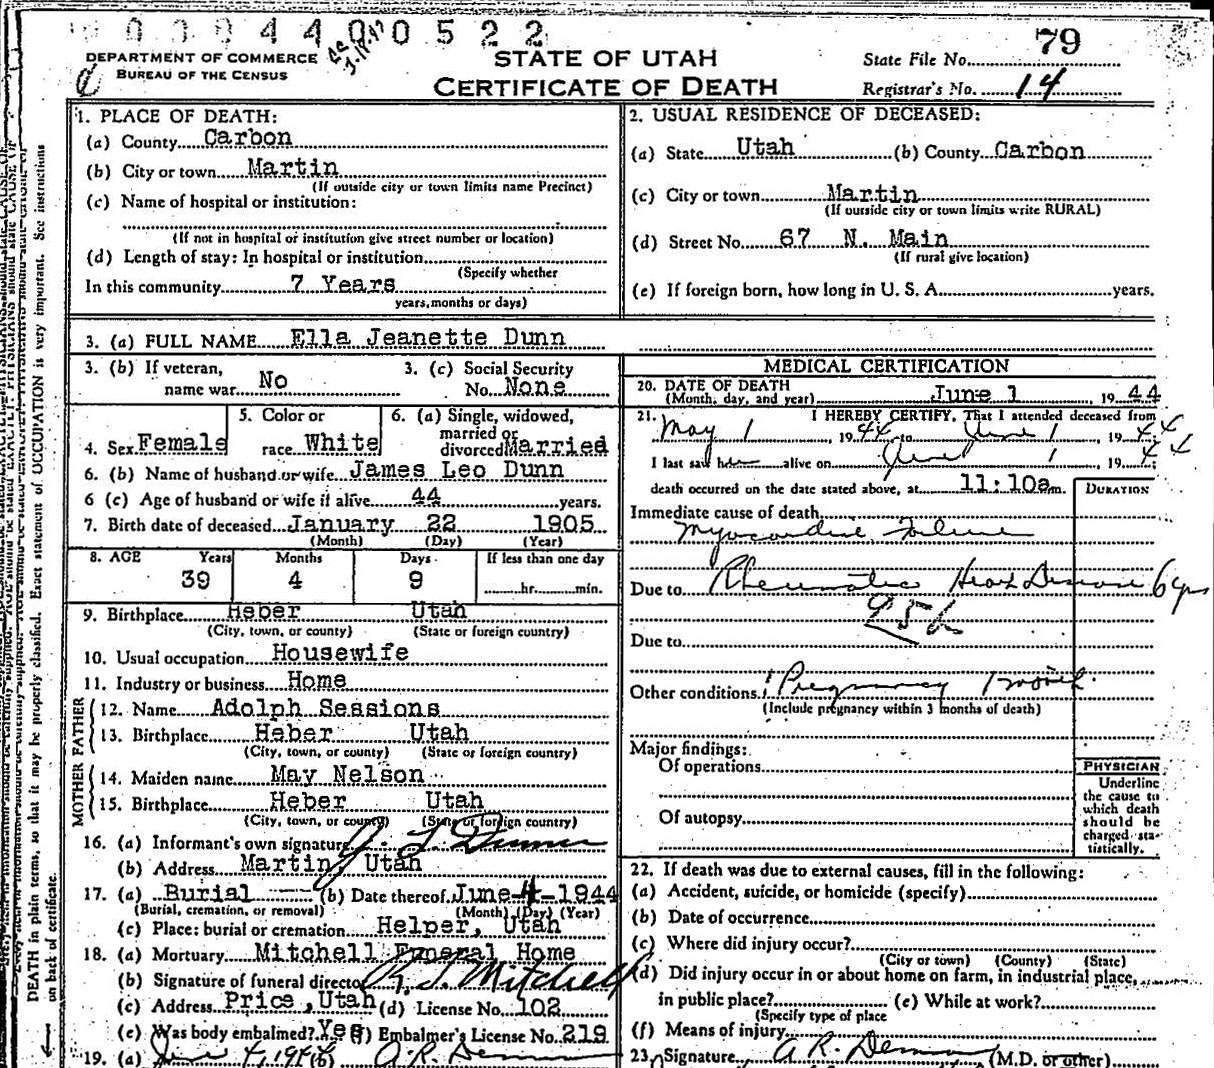 0 0 0 4 4 0 0 5 2 2
79
DEPARTMENT OF COMMERCE
BUREAU OF THE CENSUS
STATE OF UTAH
CERTIFICATE OF DEATH
State File No.
Registrar's No. 14
1. PLACE OF DEATH:
(a) County Carbon
(b) City or town Martin
(If outside city or town limits name Precinct)
(c) Name of hospital or institution:
(If not in hospital or institution give street number or location)
(d) Length of stay: In hospital or institution
(Specify whether
In this community 7 Years
years, months or days)
2. USUAL RESIDENCE OF DECEASED:
(a) State Utah (b) County Carbon
(c) City or town Martin
(If outside city or town limits write RURAL)
(d) Street No. 67 N. Main
(If rural give location)
(e) If foreign born, how long in U. S. A. years.
3. (a) FULL NAME Ella Jeanette Dunn
3. (b) If veteran, name war No
3. (c) Social Security No. None
4. Sex Female
5. Color or race White
6. (a) Single, widowed, married or divorced Married
6. (b) Name of husband or wife James Leo Dunn
6 (c) Age of husband or wife if alive 44 years.
7. Birth date of deceased January 22 1905
(Month) (Day) (Year)
8. AGE Years Months Days If less than one day
39 4 9 hr. min.
9. Birthplace Heber Utah
(City, town, or county) (State or foreign country)
10. Usual occupation Housewife
11. Industry or business Home
FATHER
12. Name Adolph Sessions
13. Birthplace Heber Utah
(City, town, or county) (State or foreign country)
MOTHER
14. Maiden name May Nelson
15. Birthplace Heber Utah
(City, town, or county) (State or foreign country)
16. (a) Informant's own signature J. L. Dunn
(b) Address Martin Utah
17. (a) Burial (b) Date thereof June 4-1944
(Burial, cremation, or removal) (Month) (Day) (Year)
(c) Place: burial or cremation Helper, Utah
18. (a) Mortuary Mitchell Funeral Home
(b) Signature of funeral director Mitchell
(c) Address Price, Utah (d) License No. 102
(e) Was body embalmed? Yes (f) Embalmer's License No. 219
19. (a) June 4, 194 A. R. Demman
MEDICAL CERTIFICATION
20. DATE OF DEATH
(Month, day, and year) June 1 , 19 44
21. I HEREBY CERTIFY, That I attended deceased from
May 1 , 1944 to June 1 , 19 44
I last saw her alive on June 1 , 19 44;
death occurred on the date stated above, at 11:10a m.
DURATION
Immediate cause of death
Myocardial Failure
Due to Rheumatic Heart Disease 6 yrs
95b
Due to
Other conditions Pregnancy 1 month
(Include pregnancy within 3 months of death)
Major findings:
Of operations
Of autopsy
PHYSICIAN
Underline
the cause to
which death
should be
charged sta-
tistically.
22. If death was due to external causes, fill in the following:
(a) Accident, suicide, or homicide (specify)
(b) Date of occurrence
(c) Where did injury occur?
(City or town) (County) (State)
(d) Did injury occur in or about home on farm, in industrial place,
in public place? (e) While at work?
(Specify type of place
(f) Means of injury
23. Signature A R. Demman (M.D. or other)
DEATH in plain terms, so that it may be properly classified. Exact statement of OCCUPATION is very important. See instructions
on back of certificate.